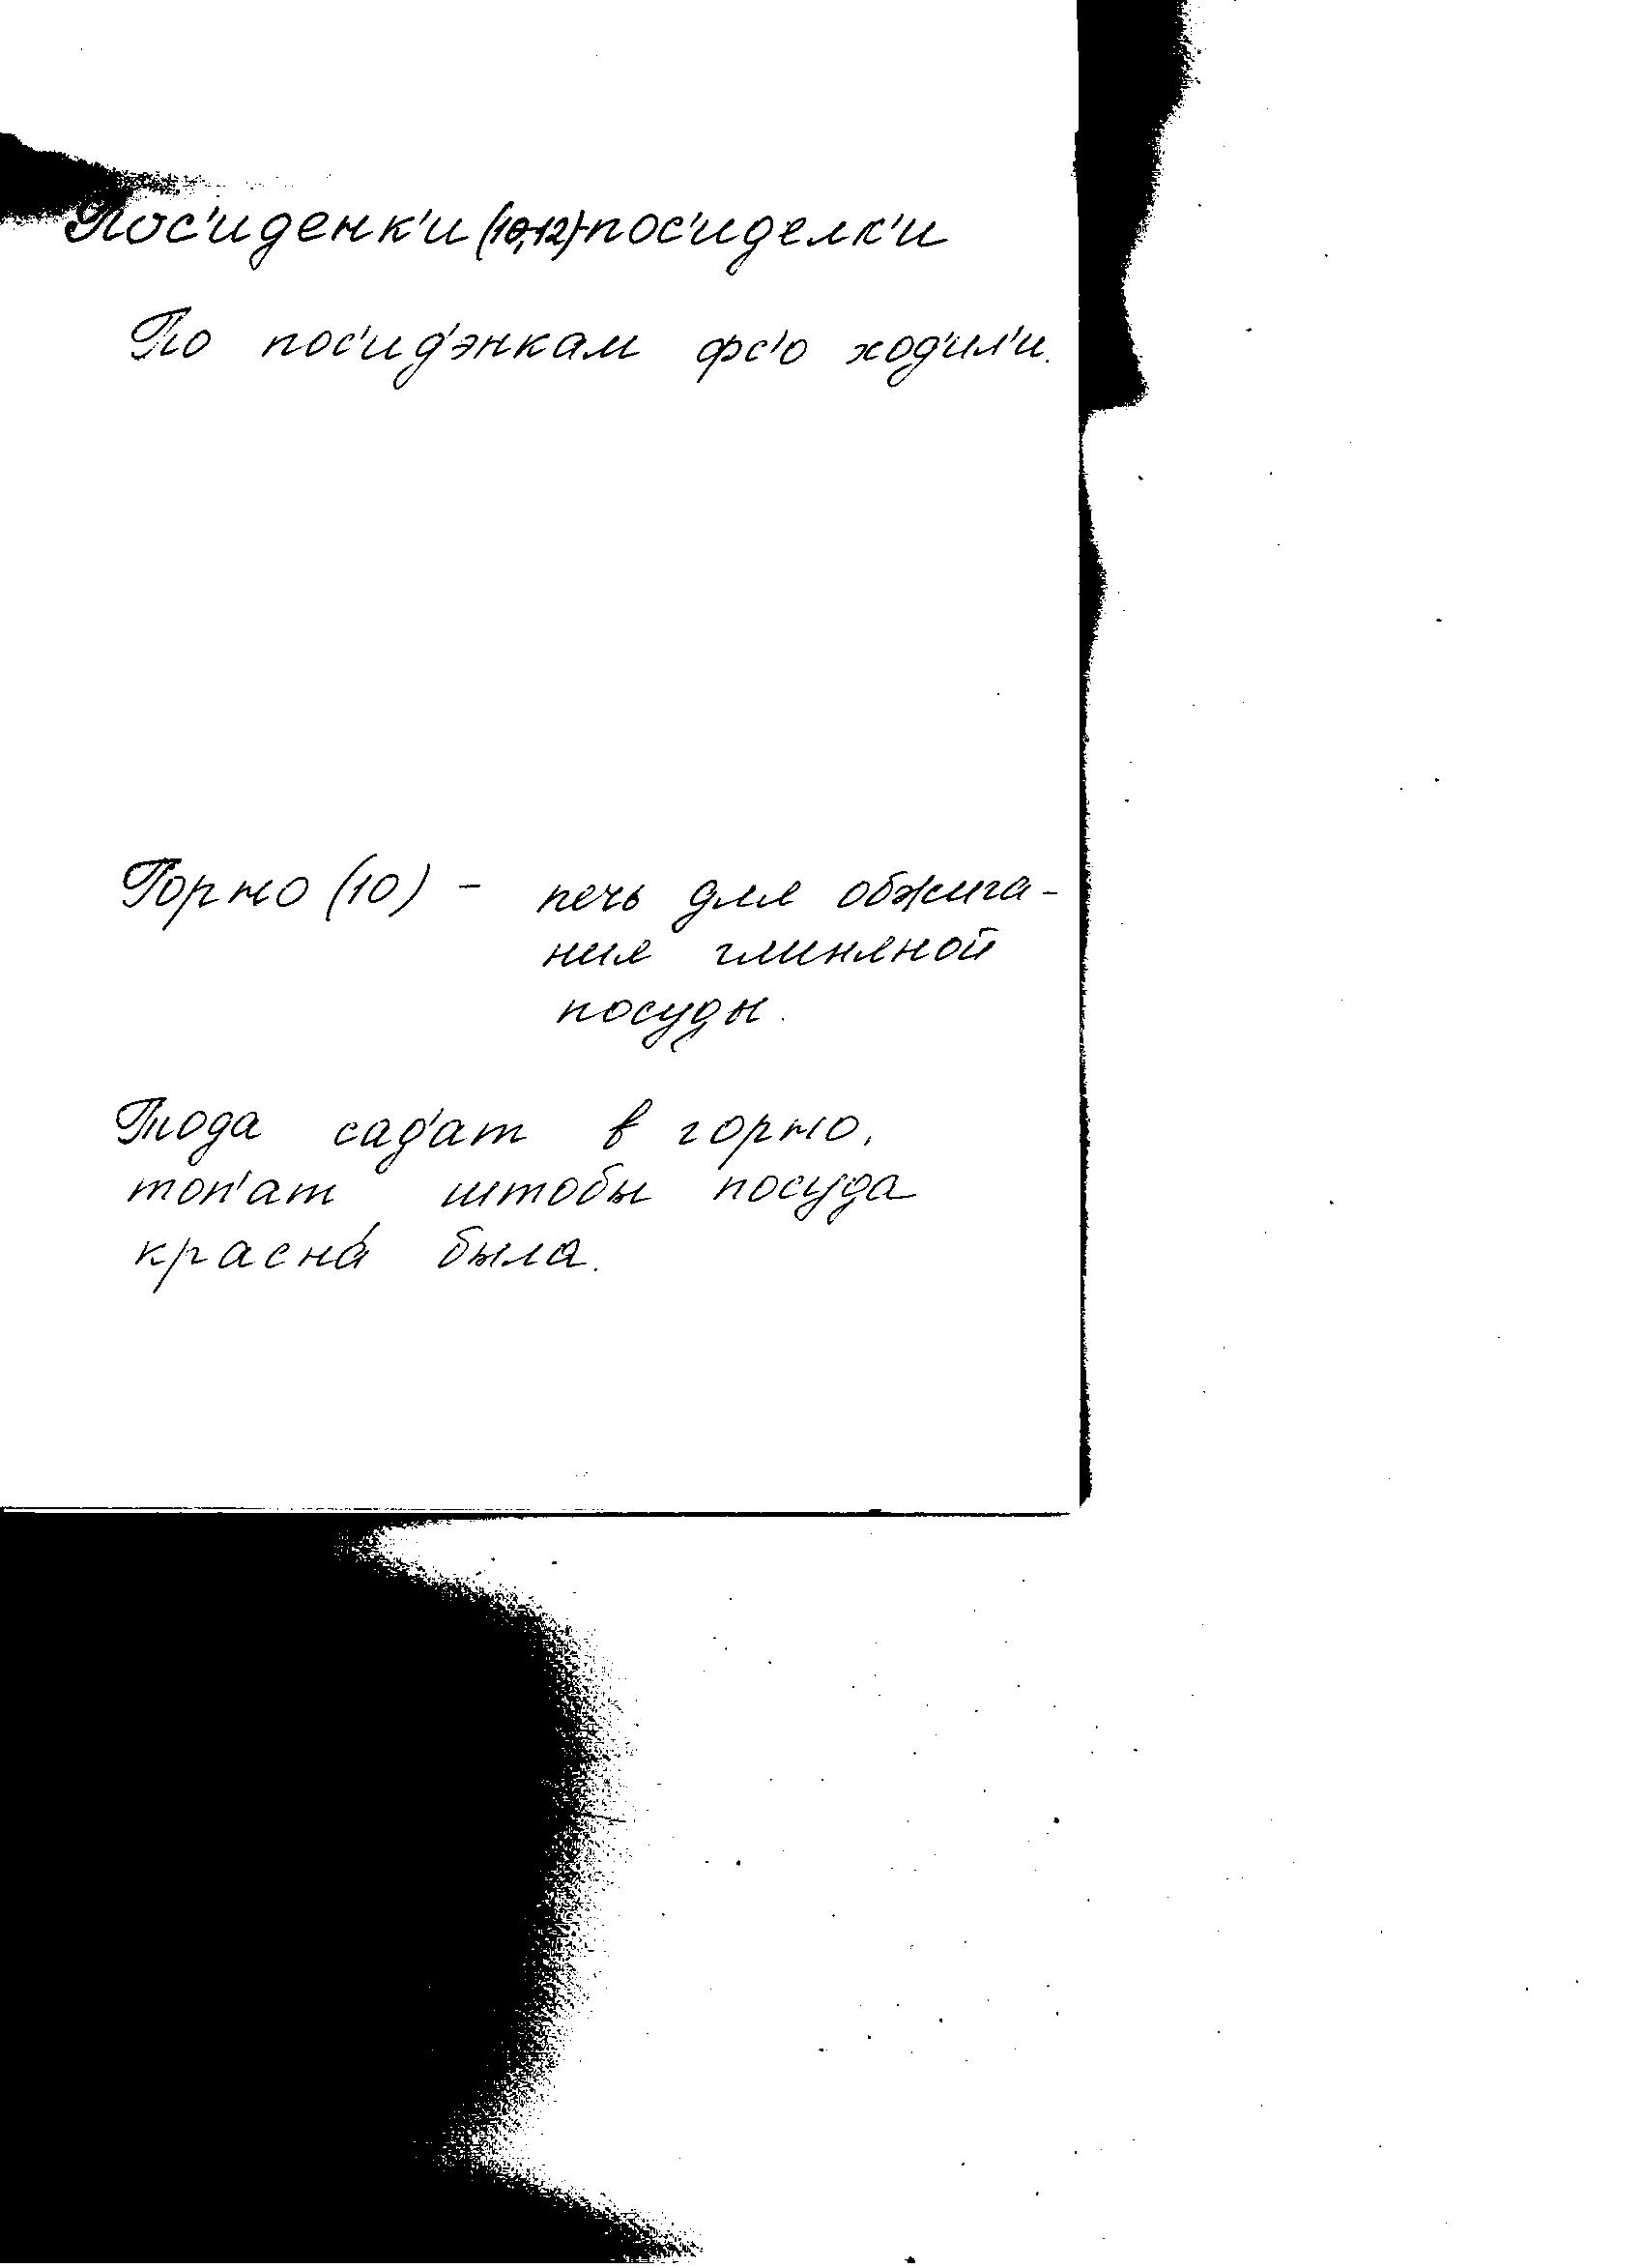 Пос'иденк'и (10,12)-пос'иделк'и
По пос'ид'энкам фс'о ход'ил'и.
Горно (10) - печь для обжига-
ния глиняной
посуды.
Тода сад'ат в горно,
топ'ат штобы посуда
краснá была.